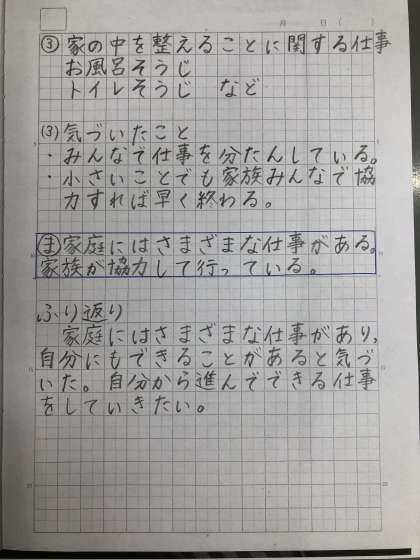 月 日( )
③ 家の中を整えることに関する仕事
お風呂そうじ
トイレそうじ など
(3) 気づいたこと
・みんなで仕事を分たんしている。
・小さいことでも家族みんなで協
力すれば早く終わる。
ま 家庭にはさまざまな仕事がある。
家族が協力して行っている。
ふり返り
家庭にはさまざまな仕事があり,
自分にもできることがあると気づ
いた。自分から進んでできる仕事
をしていきたい。